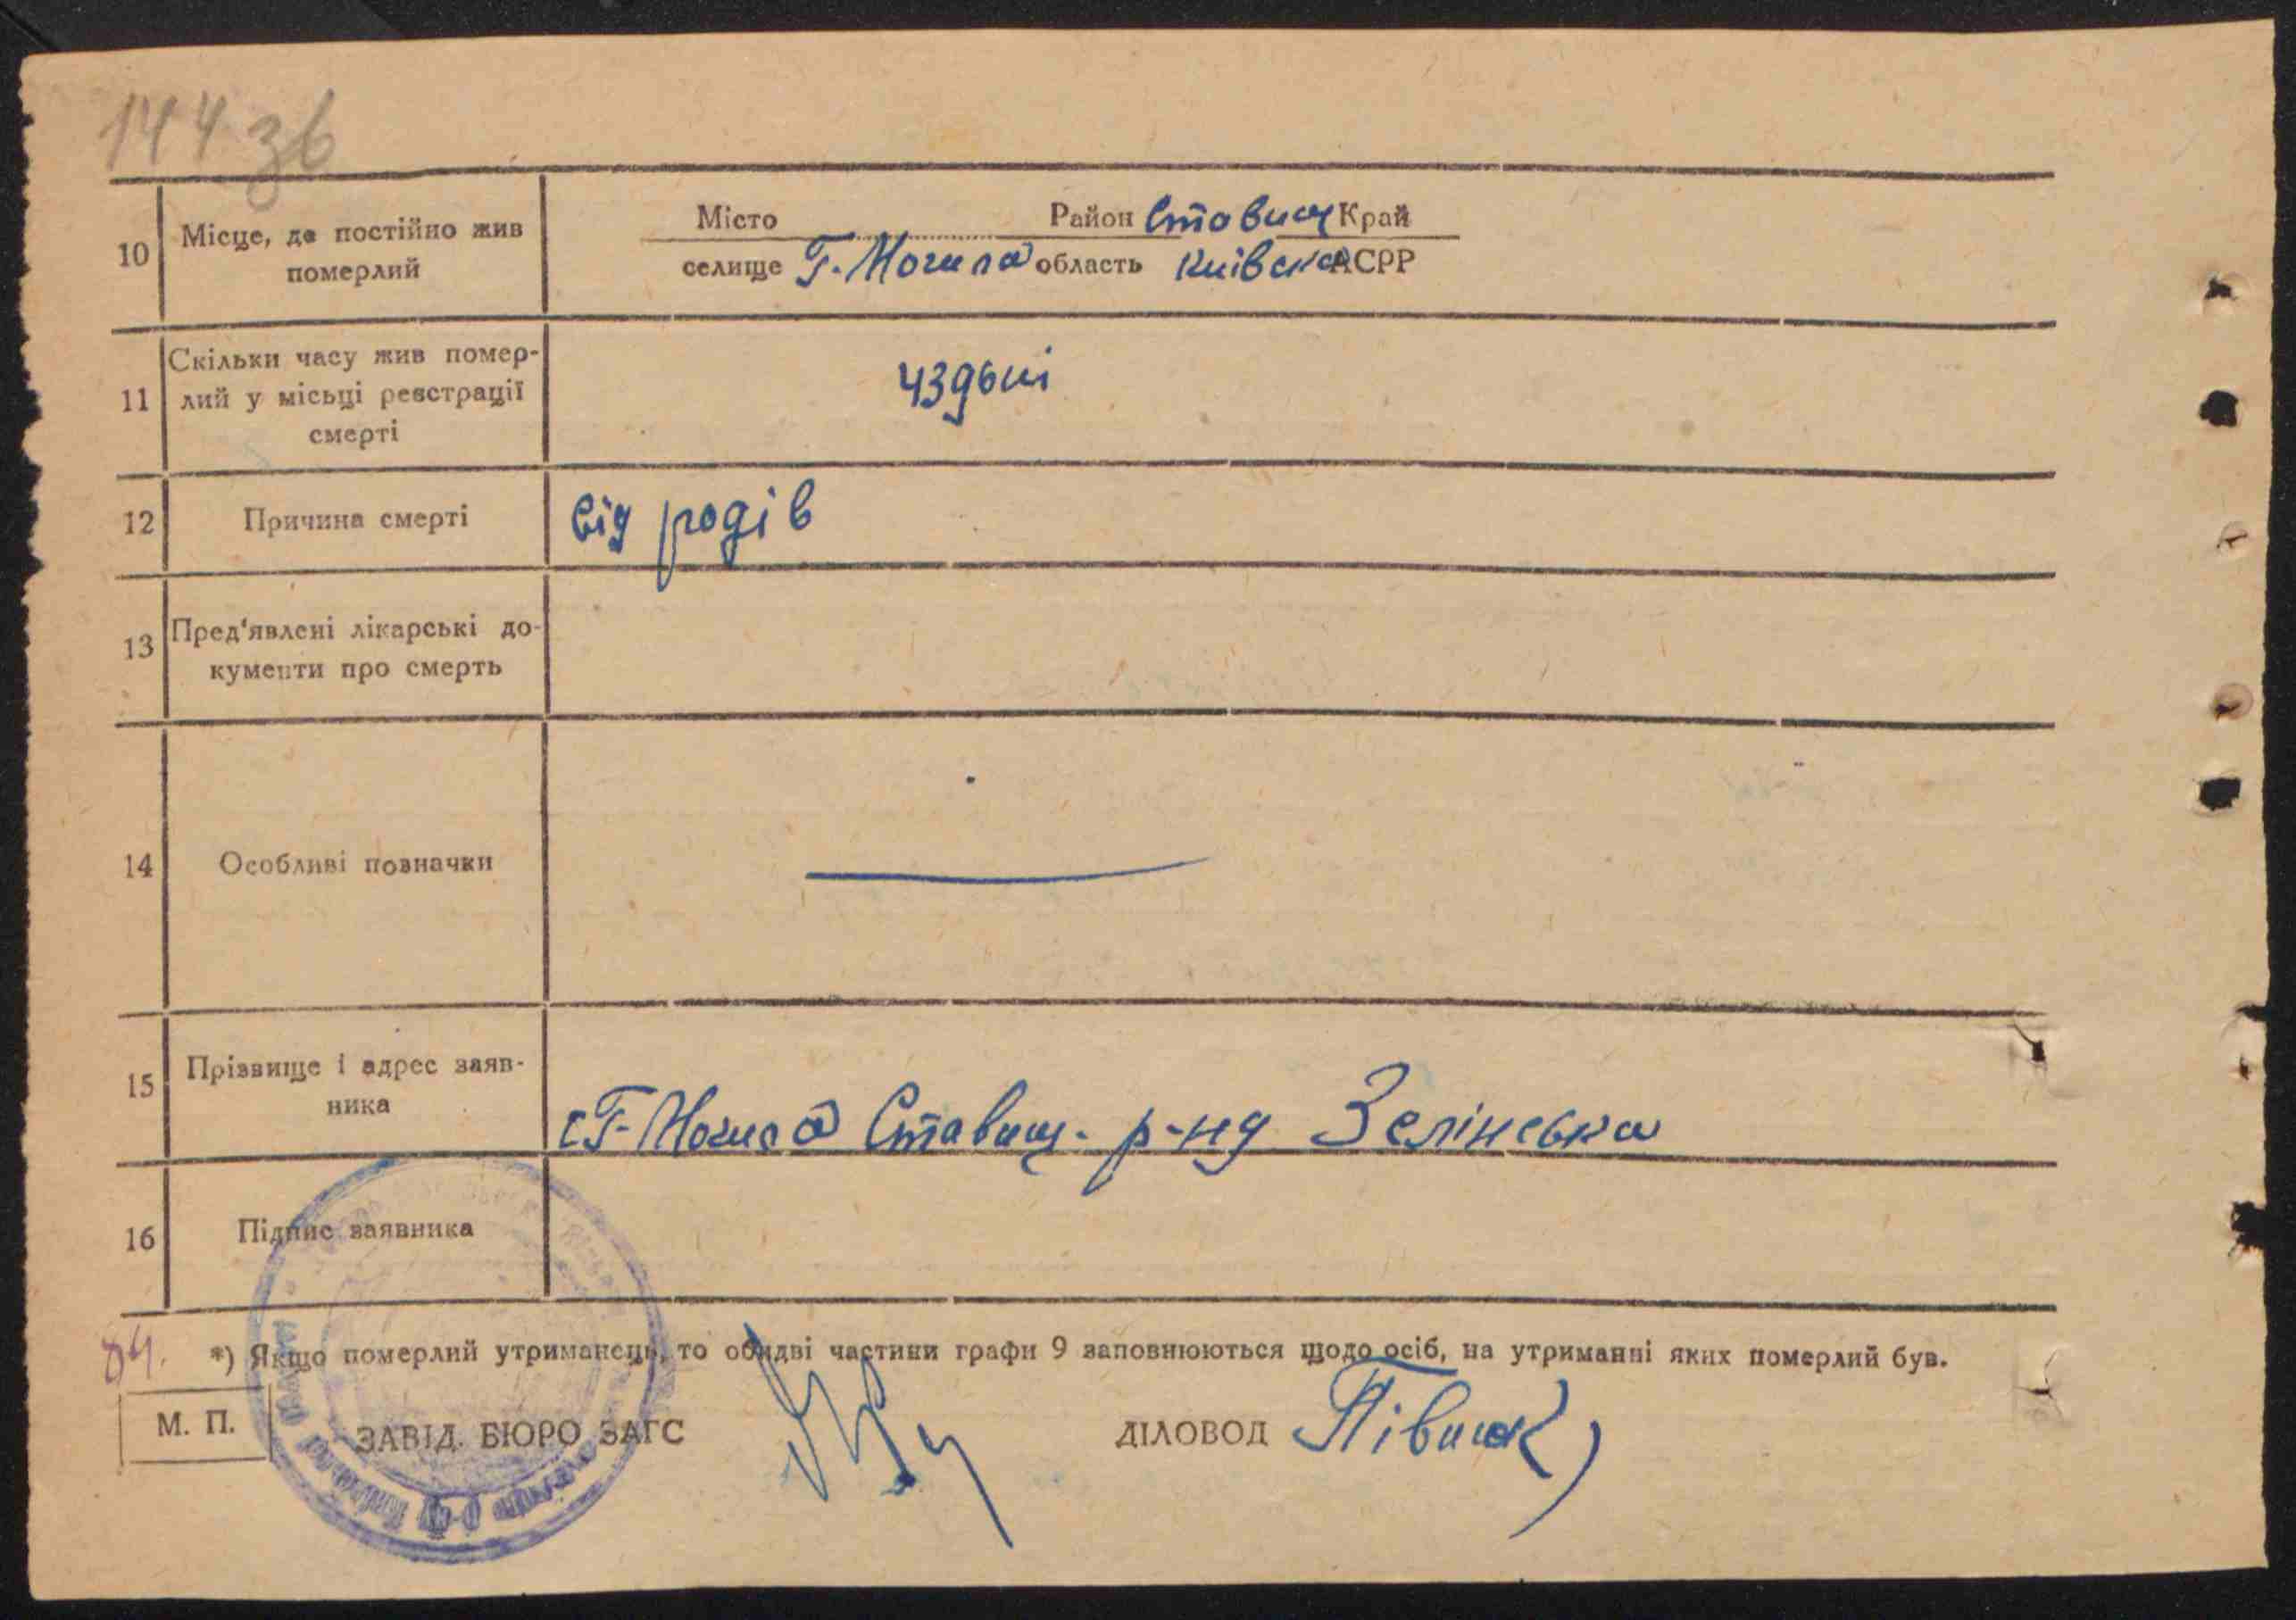 144 зв
10 Місце, де постійно жив померлий
Місто Район Ставищ Край
селище Г. Могила область Київська АСРР
11 Скільки часу жив помер-
лий у місьці реєстрації
смерті
12 Причина смерті від родів
13 Пред'явлені лікарські до-
кументи про смерть
14 Особливі позначки
15 Прізвище і адрес заяв-
ника
с Г-Могила Ставищ. р-ну Зелінська
16 Підпис заявника
*) Якщо померлий утриманець, то обидві частини графи 9 заповнюються щодо осіб, на утриманні яких померлий був.
М. П. ЗАВІД. БЮРО ЗАГС ДІЛОВОД